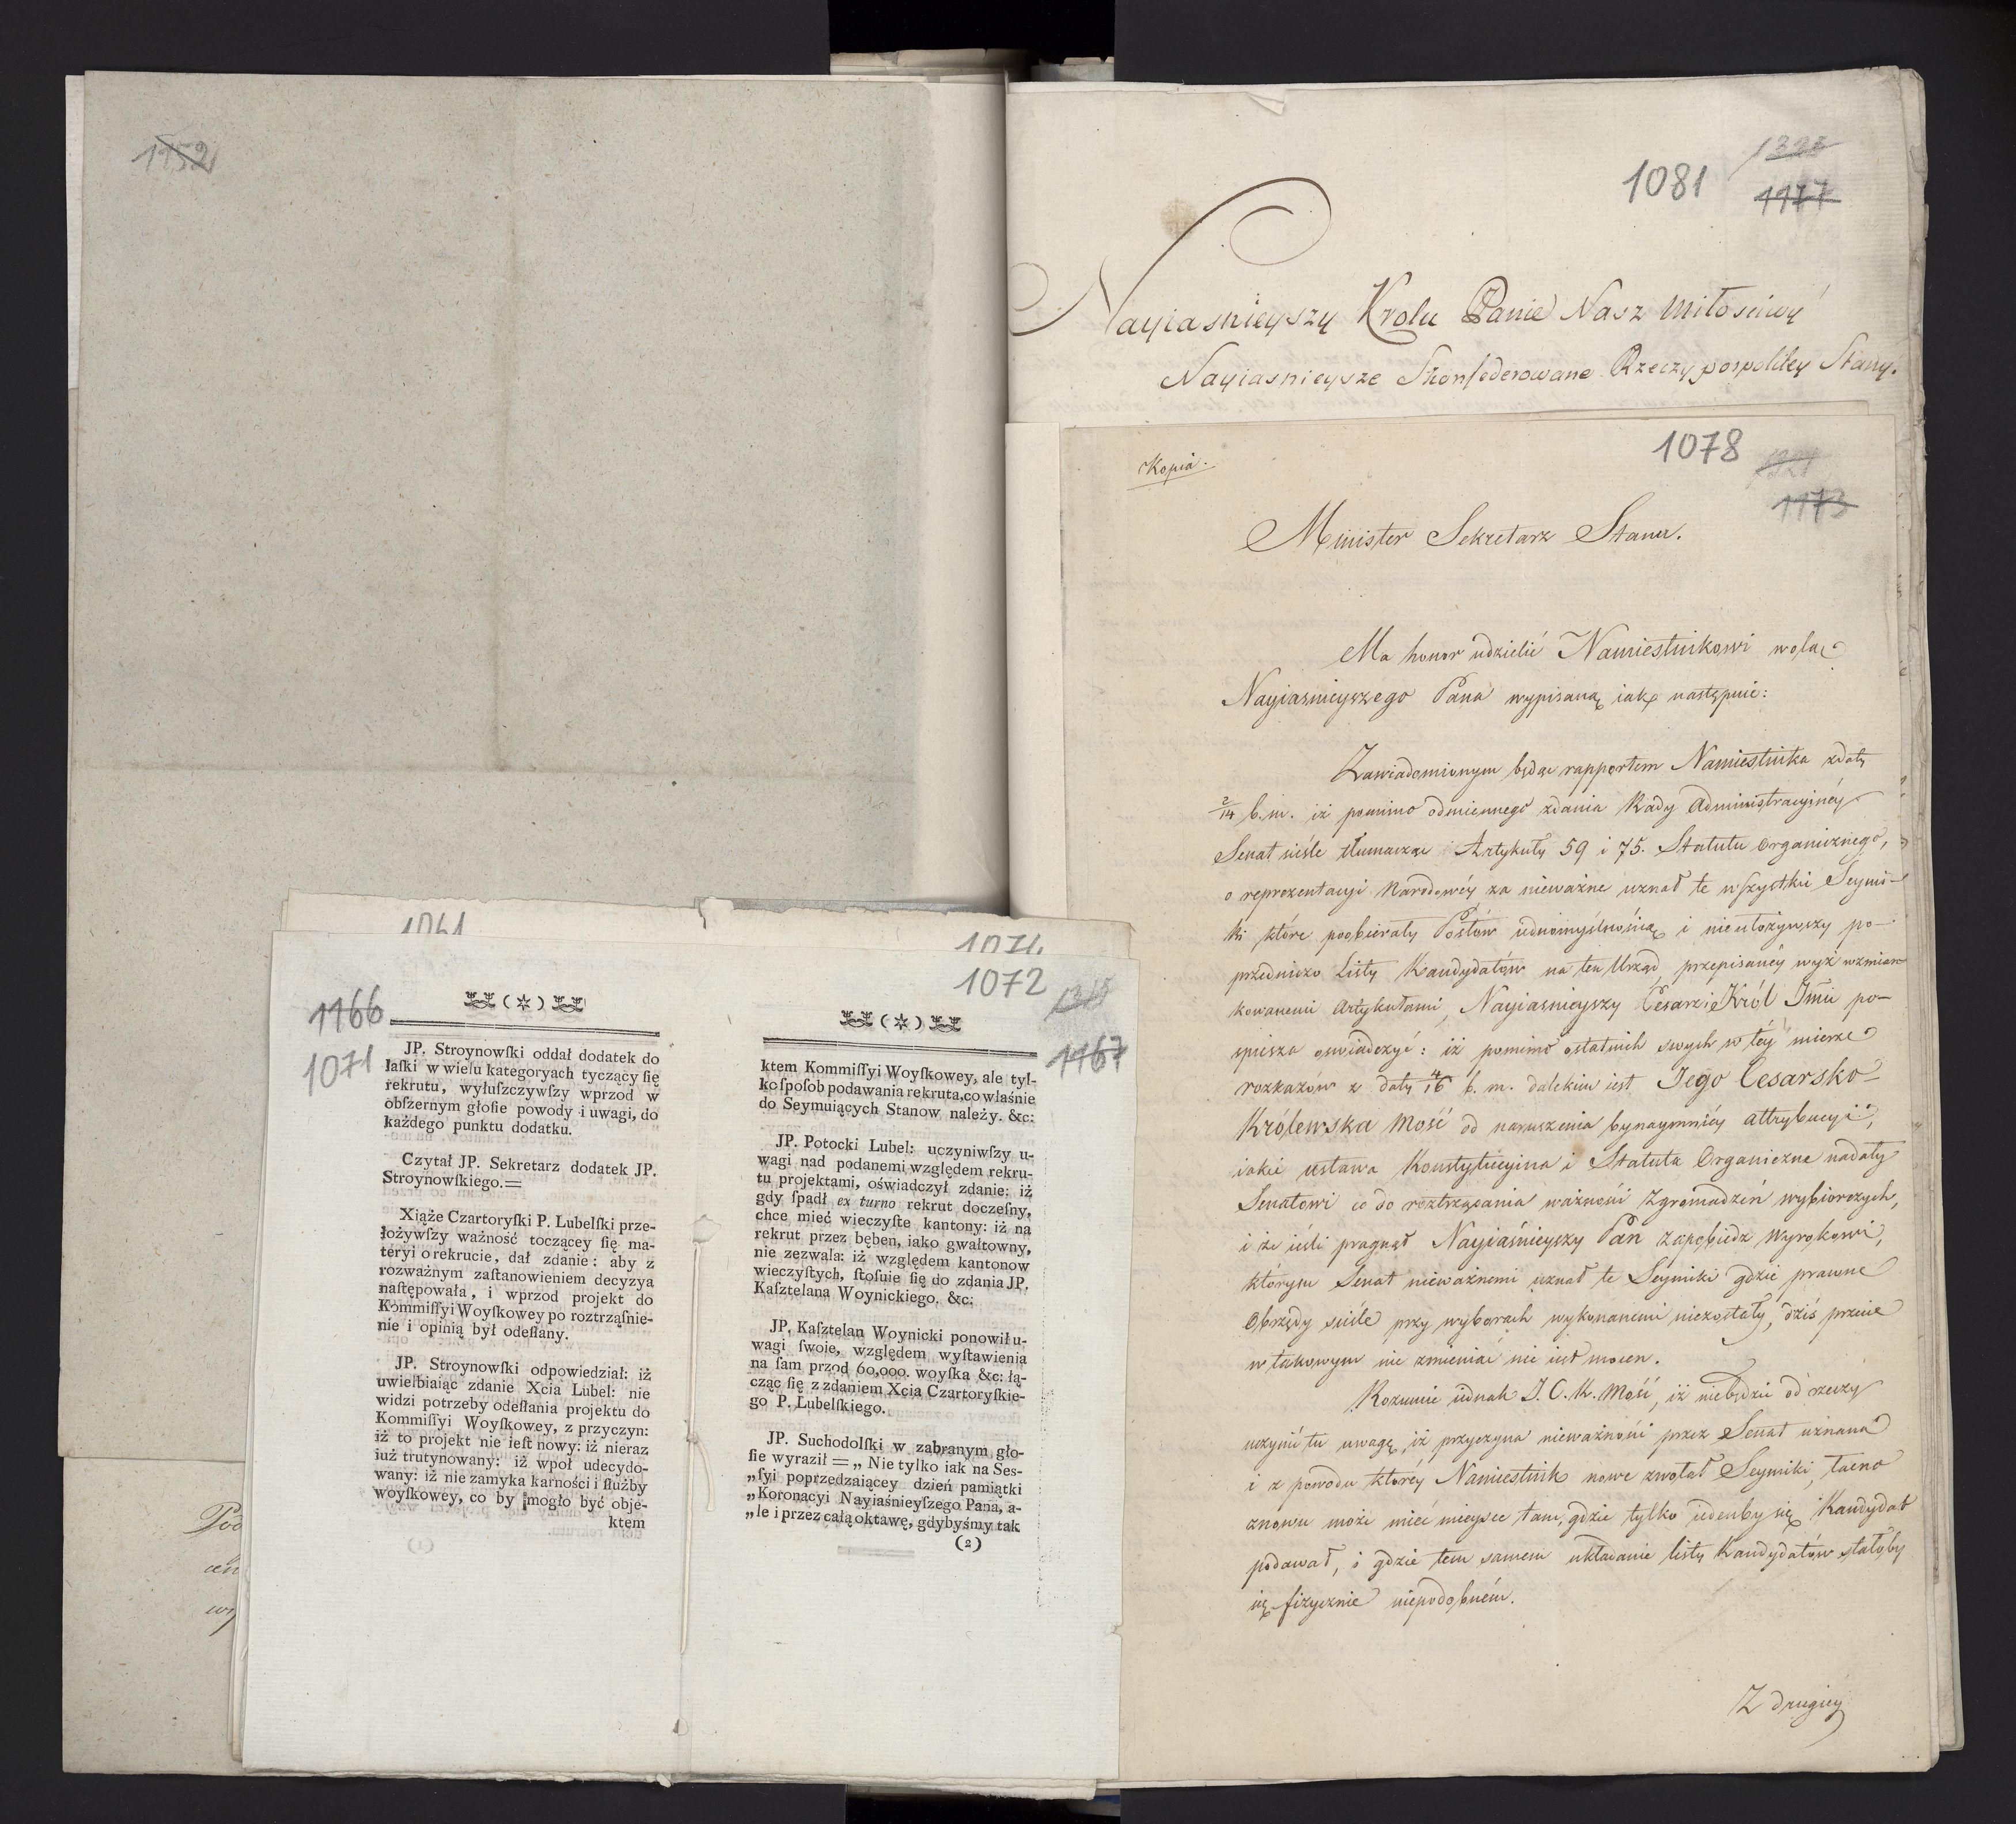 1152
1081
1323
1177
Nayiasnieyszy Krolu Panie Nasz Miłosciwy
Nayiasnieysze Skonfederowane Rzeczypospolitey Stany.
1078
1173
Kopia.
Minister Sekretarz Stanu.
Ma honor udzielić Namiestnikowi wolą
Nayiasnieyszego Pana wypisaną iak następuie:
Zawiadomionym będąc rapportem Namiestnika z daty
2/14 b. m. iż pomimo odmiennego zdania Rady Administracyinéy
Senat ściśle tłumacząc Artykuły 59 i 75. Statutu Organicznego,
o reprezentacyi Narodowéy za nieważne uznał te wszystkie Seymi-
ki które poobierały Posłów iednomyślnością i nieułożywszy po-
przedniczo Listy Kandydatów na ten Urząd przepisanéy wyż wzmian
kowanemi Artykułami, Nayiasnieyszy Cesarz i Król Jmć po-
spiesza oswiadczyć: iż pomimo ostatnich swych w téy mierze
rozkazów z daty 4/16 b. m. dalekim iest Jego Cesarsko-
Królewska Mość od naruszenia bynaymniéy attrybucyi,
iakie ustawa Konstytucyina i Statuta Organiczne nadały
Senatowi co do roztrząsania ważności Zgromadzeń wybiorczych,
i że ieśli pragnął Nayiaśnieyszy Pan zapobiedz wyrokowi,
którym Senat nieważnemi uznał te Seymiki gdzie prawne
Obrzędy ściśle przy wyborach wykonanemi niezostały, dziś przecie
w takowym nic zmieniać nie iest mocen.
Rozumie iednak J. C. K. Mość, iż niebędzie od rzeczy
uczynić tu uwagę, iż przyczyna nieważności przez Senat uznana
i z powodu któréy Namiestnik nowe zwołał Seymiki, łacno
znowu może mieć mieysce tam, gdzie tylko iedenby się Kandydat
podawał, i gdzie tem samem układanie listy Kandydatów stałoby
się fizycznie niepodobném.
Z drugiéy
1061
1071.
1166
1071
(☆)
JP. Stroynowſki oddał dodatek do
łaſki w wielu kategoryach tyczący ſię
rekrutu, wyłuſzczywſzy wprzod w
obſzernym głoſie powody i uwagi, do
każdego punktu dodatku.
Czytał JP. Sekretarz dodatek JP.
Stroynowſkiego.=
Xiąże Czartoryſki P. Lubelſki prze-
łożywſzy ważność toczącey ſię ma-
teryi o rekrucie, dał zdanie: aby z
rozważnym zaſtanowieniem decyzya
naſtępowała, i wprzod projekt do
Kommiſſyi Woyſkowey po roztrząſnie-
nie i opinią był odeſłany.
JP. Stroynowſki odpowiedział: iż
uwielbiaiąc zdanie Xcia Lubel: nie
widzi potrzeby odeſłania projektu do
Kommiſſyi Woyſkowey, z przyczyn:
iż to projekt nie ieſt nowy: iż nieraz
iuż trutynowany: iż wpoł udecydo-
wany: iż nie zamyka karności i ſłużby
woyſkowey, co by mogło być obje-
ktem
1072
1167
(☆)
ktem Kommiſſyi Woyſkowey, ale tyl-
ko ſpoſob podawania rekruta, co właśnie
do Seymuiących Stanow należy. &c:
JP. Potocki Lubel: uczyniwſzy u-
wagi nad podanemi względem rekru-
tu projektami, oświadczył zdanie: iż
gdy ſpadł ex turno rekrut doczeſny,
chce mieć wieczyſte kantony: iż na
rekrut przez bęben, iako gwałtowny,
nie zezwala: iż względem kantonow
wieczyſtych, ſtoſuie ſię do zdania JP.
Kaſztelana Woynickiego. &c:
JP. Kaſztelan Woynicki ponowił u-
wagi ſwoie, względem wyſtawienia
na ſam przod 60,000. woyſka &c: łą-
cząc ſię z zdaniem Xcia Czartoryſkie-
go P. Lubelſkiego.
JP. Suchodolſki w zabranym gło-
ſie wyraził = „ Nie tylko iak na Ses-
„ſyi poprzedzaiącey dzień pamiątki
„Koronacyi Nayiaśnieyſzego Pana, a-
„le i przez całą oktawę, gdybyśmy tak
(2)